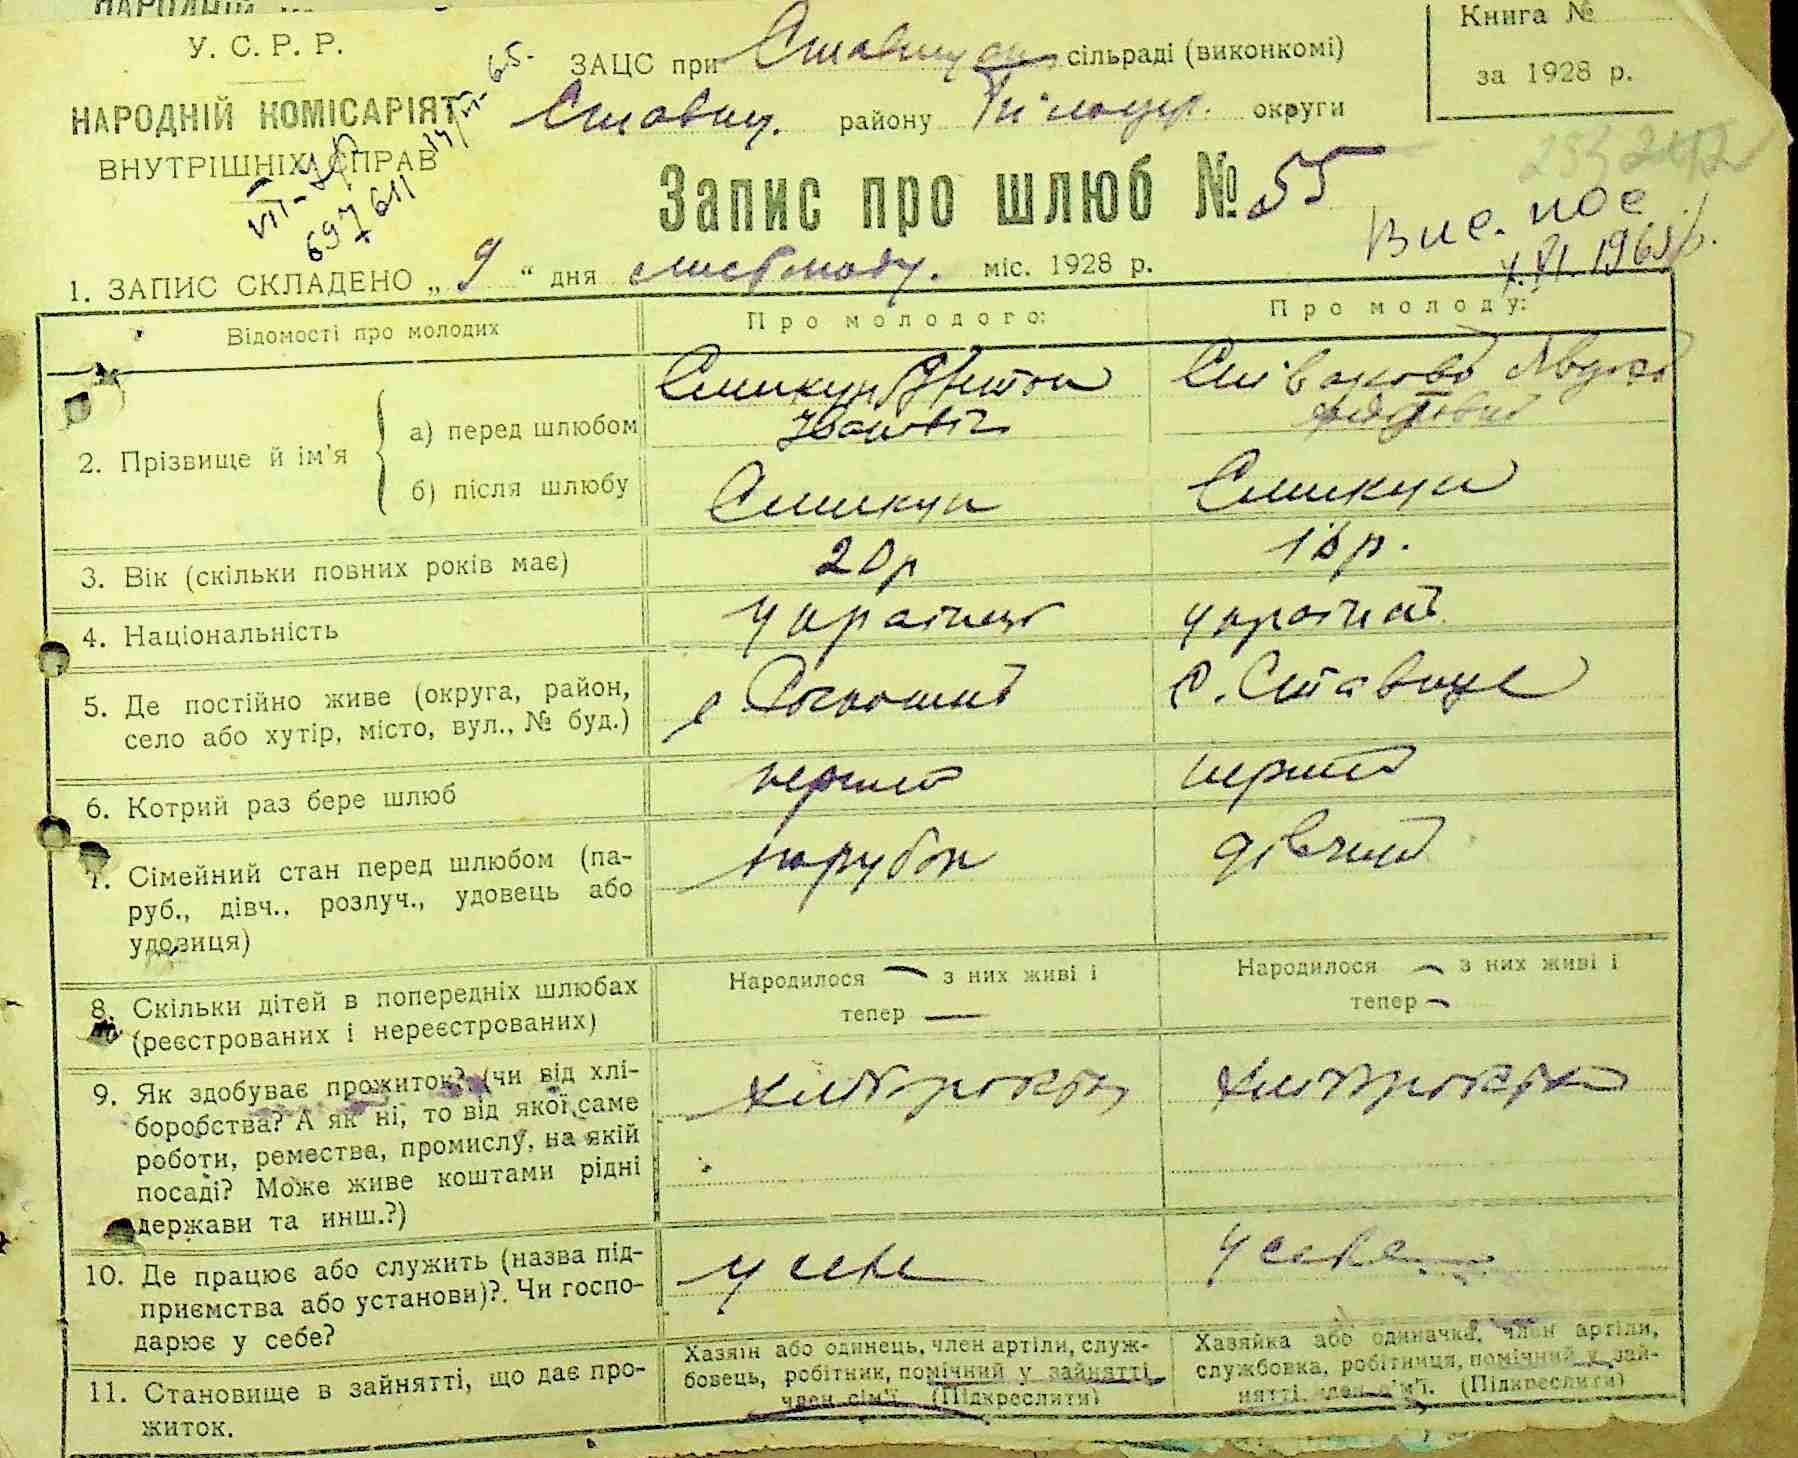 У. С. Р. Р.
НАРОДНІЙ КОМІСАРІЯТ
ВНУТРІШНІХ СПРАВ
ЗАЦС при сільраді (виконкомі)
Ставищ. району Білоцер. округи
Книга №
за 1928 р.
Запис про шлюб № 55
697611
Вис. пос
1. ЗАПИС СКЛАДЕНО „ 9 “ дня листопаду. міс. 1928 р.
Відомості про молодих
Про молодого:
Про молоду:
2. Прізвище й ім'я
а) перед шлюбом
Смикун Антон
Іванович
Співакова
б) після шлюбу
Смикун
Смикун
3. Вік (скільки повних років має)
20 р
18 р.
4. Національність
українец
5. Де постійно живе (округа, район,
село або хутір, місто, вул., № буд.)
с.
с. Ставище
6. Котрий раз бере шлюб
перший
перший
7. Сімейний стан перед шлюбом (па-
руб., дівч., розлуч., удовець або
удовиця)
парубок
8. Скільки дітей в попередніх шлюбах
(реєстрованих і нереєстрованих)
Народилося — з них живі і
тепер —
Народилося — з них живі і
тепер —
9. Як здобуває прожиток? (чи від хлі-
боробства? А як ні, то від якої саме
роботи, ремества, промислу, на якій
посаді? Може живе коштами рідні
держави та инш.?)
10. Де працює або служить (назва під-
приємства або установи)?. Чи госпо-
дарює у себе?
у себе
у себе
11. Становище в зайнятті, що дає про-
житок.
Хазяїн або одинець, член артіли, служ-
бовець, робітник, помічний у зайнятті
член сім'ї. (Підкреслити)
Хазяйка або одиначка, член артіли,
службовка, робітниця, помічний у зай-
нятті член сім'ї. (Підкреслити)